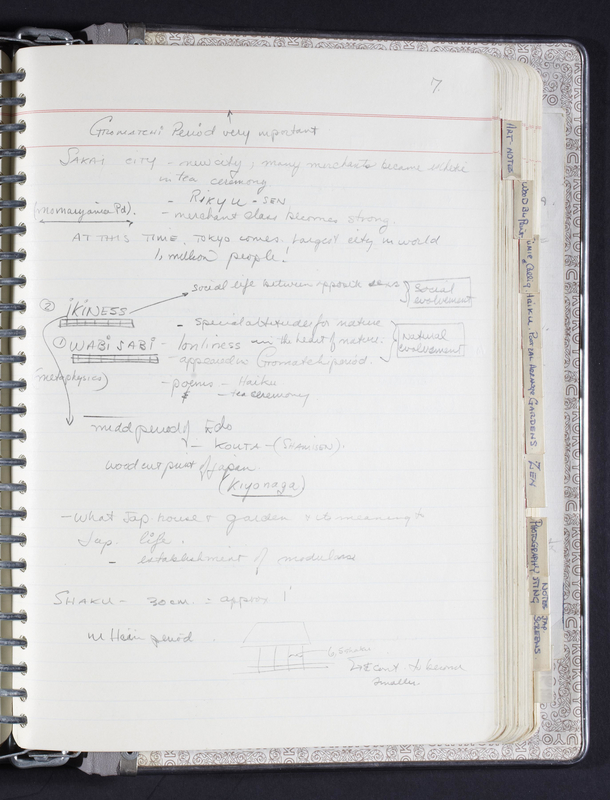 7.
GROMATCHI Period very important
SAKAI CITY - new city, many merchants became
in tea ceremony
- RIKYU - SEN
(Momoryama Pd).
- merchant class becomes strong.
AT THIS TIME, TOKYO comes. Largest city in world
1, million people!
social life between opposite sexes
Social evolvement
② IKINESS
- special attitudes for nature
① WABI SABI - lonliness in the heart of nature.
Natural evolvement
- appeared in Gromatchi period.
(metaphysics)
- poems - Haiku
- tea ceremony
midd period of Edo
- KOUTA - (SHAMISEN).
wood cut print of Japan
(Kiyonaga)
- What Jap. house & garden & its meaning to
Jap. life.
- establishment of modulars
SHAKU - 30 cm. = approx 1'
in Hein period.
6 Shaku
to become
smaller.
ART-NOTES
WOODBU PRINT
HAIKU
GARDENS
ZEN
PHOTOGRAPHY
NOTES JAP
SCREENS